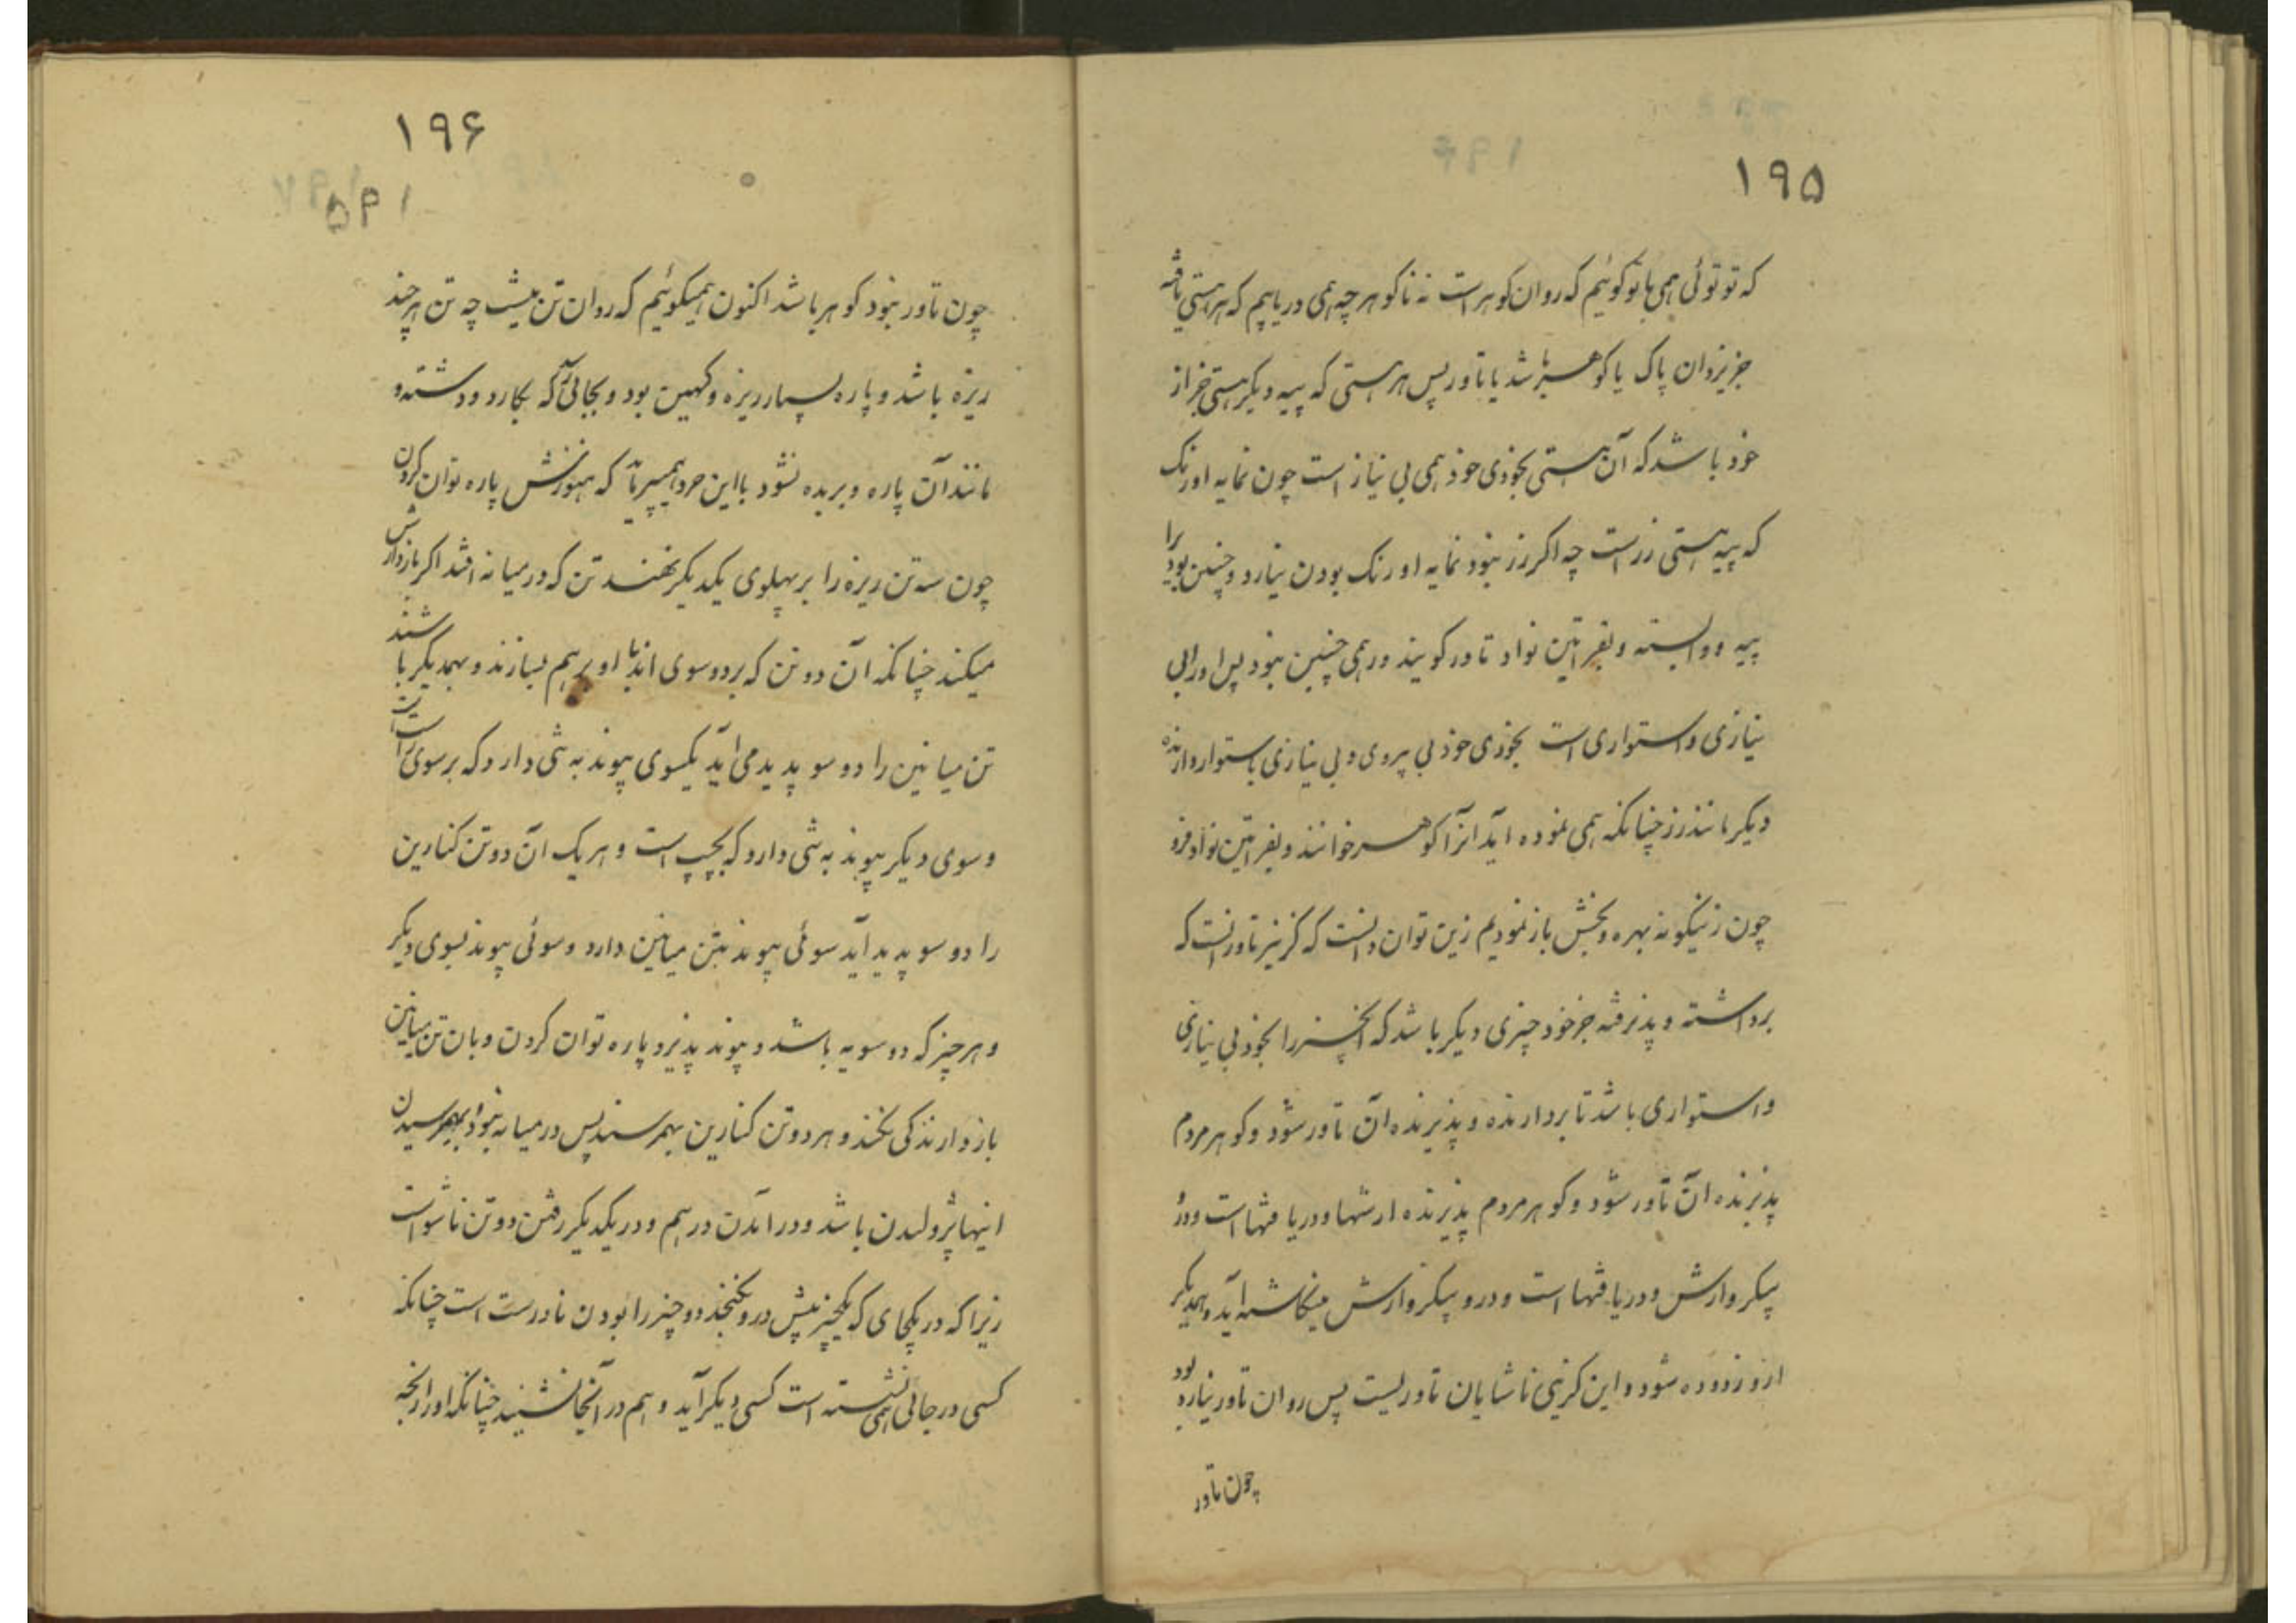 ۱۹۵
که تو توئی همی با تو کوئیم که روان کوهر است نه ناکوهر چه همی دریابیم که هر هستی یافته
جز یزدان پاک یا کوهر باشد یا تاور پس هر هستی که پییه دیکر هستی جز از
خود باشد که آن هستی بخودی خود همی بی نیاز است چون نمایه اورنک
که پییه هستی زرست چه اکر زر نبود نمایه اورنک بودن نیارد و چنین بود را
پییه و وابسته و بفراتین نواد تاور کویند ور همی چنین نبود پس اورا بی
نیازی و استواری است بخودی خود بی پیروی و بی نیازی باستوار دارنده
دیکر مانند زر چنانکه همی نموده اید انرا کوهر خوانند و بفراتین نواد فرو
چون زینکونه بهره و بخش باز نمودیم زین توان دانست که کزیر تاور انست که
برداشته و پذیرفته جز خود چیزی دیکر باشد که انچیز را بخود بی نیازی
و استواری باشد تا بردارنده و پذیرنده ان تاور شود و کوهر مردم
پذیرنده ان تاور شود و کوهر مردم پذیرنده ارشها و دریافتها است و در
پیکر وارش و دریافتها است و درو پیکر وارش مینکاشته اید و بهمدیکر
ازو زدوده شود و این کزینی ناشایان تاور یست پس روان تاور نیارد بود
چون تاور
۱۹۶
چون تاور نبود کوهر باشد اکنون همیکوئیم که روان تن نیست چه تن هر چند
ریزه باشد و پاره بسیار ریزه و کهین بود و بجائی رسد که بکارد و دشته و
مانند آن پاره و بریده نشود با این خرد همیپرماید که هنوزش پاره توان کردن
چون سه تن ریزه را بر پهلوی یکدیکر نهند تن که در میانه افتد اکر بازدارش
میکند چنانکه آن دو تن که بر دو سوی اند با او بر هم نسازند و بهمدیکر نباشند
تن میانین را دو سو پدید می اید یکسوی پیوند به شی دارد که بر سوی راست است
و سوی دیکر پیوند به شی دارد که بچپ است و هر یک ان دو تن کنارین
را دو سو پدید آید سوئی پیوند بتن میانین دارد و سوئی پیوند بسوی دیکر
و هر چیز که دو سویه باشد و پیوند پذیرد پاره توان کردن و بان تن میانین
بازدارندکی نکند و هر دو تن کنارین بهم رسند پس در میانه نبود و بهم رسیدن
اینها پژولیدن باشد و درآمدن در هم و در یکدیکر رفتن دو تن ناشو است
زیرا که در یکجای که یکچیز بیش درو نکنجد دو چیز را بودن نادرست است چنانکه
کسی در جائی همی نشسته است کسی دیکر آید و هم در آنجا نشیند چنانکه او را